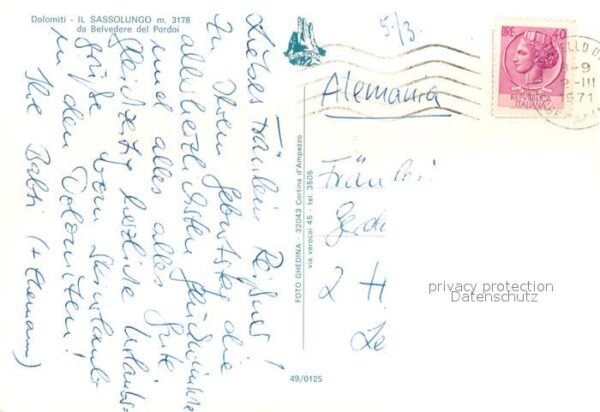 Dolomiti - IL SASSOLUNGO m. 3178
da Belvedere del Pordoi
Liebes Fräulein
zu Ihrem Geburtstag die
allerherzlichsten Glückwünsche
und alles alles Gute
Gleichzeitig herzliche Urlaubs-
grüße vom Skiurlaub
in den Dolomiten!
Ihre Babsi
FOTO GHEDINA - 32043 Cortina d'Ampezzo
via verocai 45 - tel 3505
49/0125
5./3.
LIRE 40
REPVBBLICA
ITALIANA
1971
Alemania
Fräulein
Gerda
2 H
privacy protection
Datenschutz